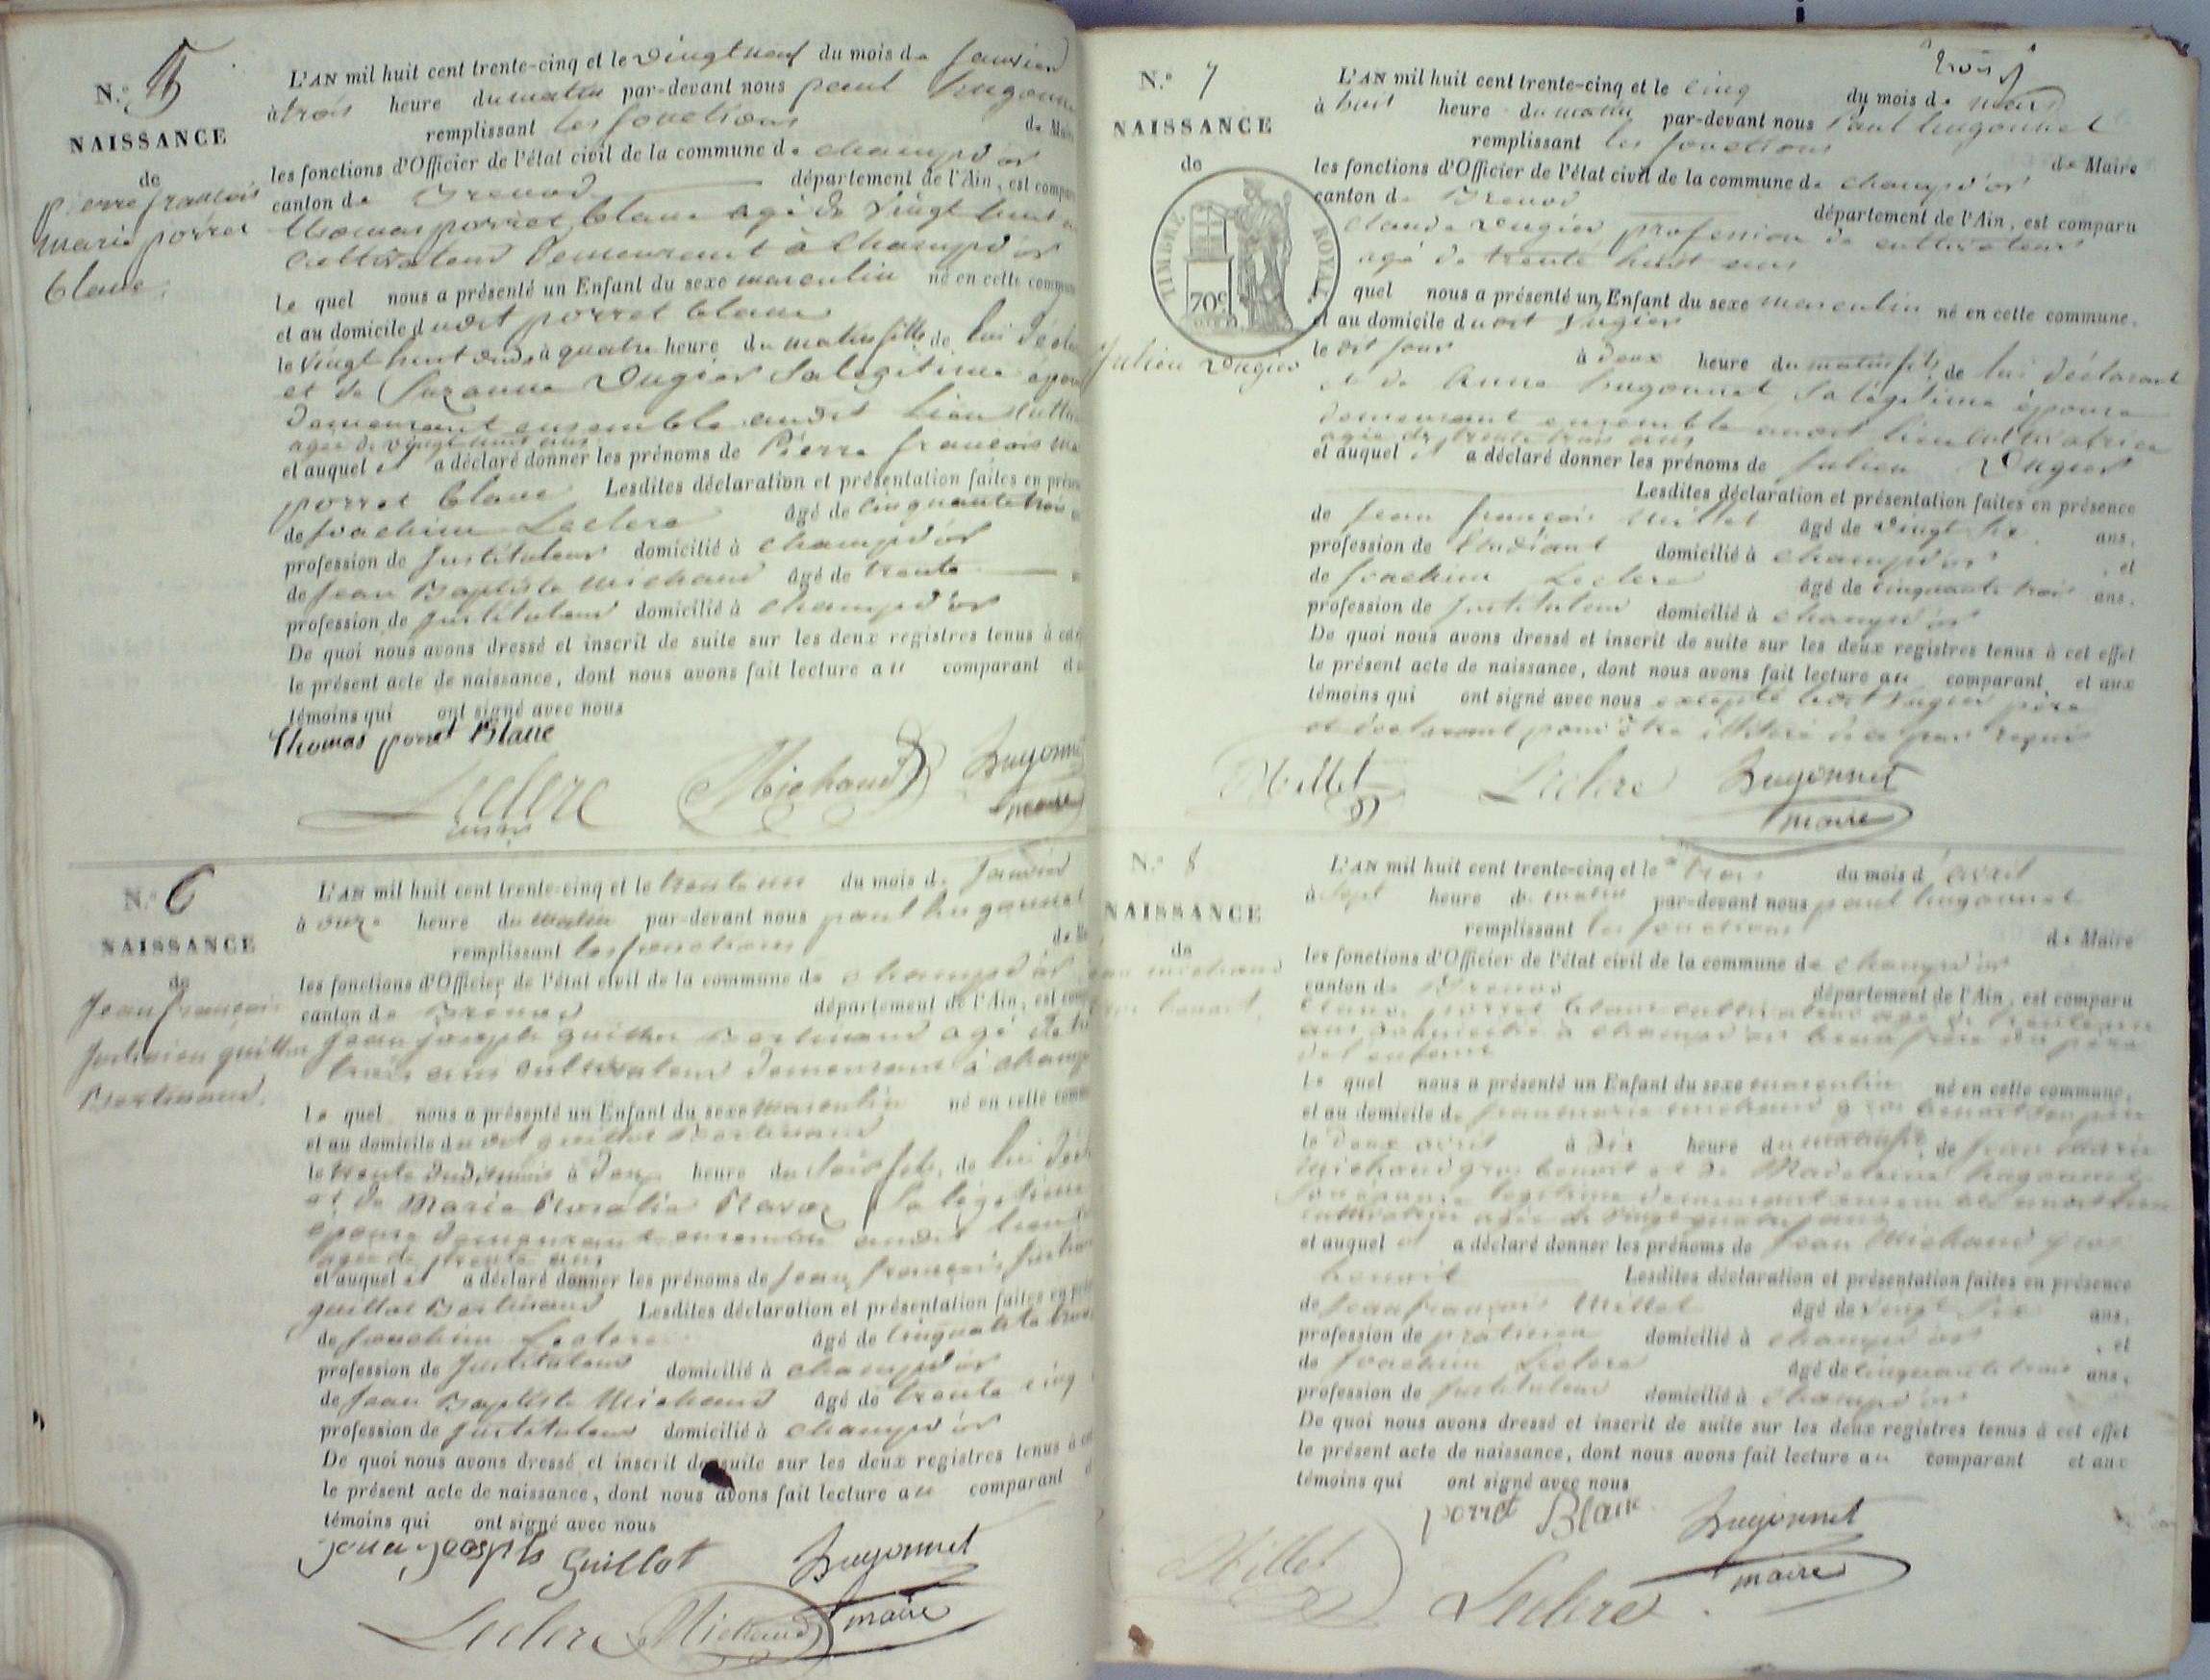 N.o 5
NAISSANCE
de
pierre françois
marie porret
blanc
L'AN mil huit cent trente-cinq et le vingt neuf du mois de janvier
à trois heure du matin par-devant nous paul hugonnet
remplissant les fonctions de Maire
les fonctions d'Officier de l'état civil de la commune de champd'or
canton de Brenod département de l'Ain, est comparu
thomas porret blanc agé de vingt huit
cultivateur demeurant à champd'or
Le quel nous a présenté un Enfant du sexe masculin né en cette commune
et au domicile dudit porret blanc
le vingt huit dudt à quatre heure du matin fils de lui
et de Suzanne Dugier sa légitime
demeurant ensemble audit lieu
agée de vingt huit ans
et auquel il a déclaré donner les prénoms de Pierre françois
porret blanc Lesdites déclaration et présentation faites en
de Joachim Leclerc âgé de cinquante trois
profession de Instituteur domicilié à champd'or
de Jean Baptiste Michaud âgé de trente
profession de Instituteur domicilié à champd'or
De quoi nous avons dressé et inscrit de suite sur les deux registres tenus à
le présent acte de naissance, dont nous avons fait lecture au comparant
témoins qui ont signé avec nous
Thomas porret Blanc
Leclerc Michaud hugonnet
maire
N.o 6
NAISSANCE
de
Jean françois
guillot
Bertinand
L'AN mil huit cent trente-cinq et le trente un du mois de janvier
à onze heure du matin par-devant nous paul hugonnet
remplissant les fonctions
les fonctions d'Officier de l'état civil de la commune de champd'or
canton de Brenod département de l'Ain, est
Jean joseph guillot Bertinand agé de
trois ans cultivateur demeurant à
Le quel nous a présenté un Enfant du sexe masculin né en cette
et au domicile dudit guillot Bertinand
le trente dudit mois à heure du soir fils de lui
et de Marie Rosalie Ravoz sa légitime
épouse demeurant ensemble audit lieu
agée de trente ans
et auquel il a déclaré donner les prénoms de Jean françois
guillot Bertinand Lesdites déclaration et présentation faites en
de Joachim Leclerc âgé de cinquante trois
profession de Instituteur domicilié à champd'or
de Jean Baptiste Michaud âgé de trente cinq
profession de Instituteur domicilié à champd'or
De quoi nous avons dressé et inscrit de suite sur les deux registres tenus à
le présent acte de naissance, dont nous avons fait lecture au comparant
témoins qui ont signé avec nous
jean joseph guillot hugonnet
Leclerc Michaud maire
trois
N.o 7
NAISSANCE
de
TIMBRE ROYAL
70c
Julien Dugier
L'AN mil huit cent trente-cinq et le cinq du mois de mars
à huit heure du matin par-devant nous Paul hugonnet
remplissant les fonctions de Maire
les fonctions d'Officier de l'état civil de la commune de champd'or
canton de Brenod département de l'Ain, est comparu
Claude Dugier profession de cultivateur
agé de trente huit ans
quel nous a présenté un Enfant du sexe masculin né en cette commune.
et au domicile dudit Dugier
le dit jour à deux heure du matin fils de lui déclarant
et de Anne hugonnet sa légitime épouse
demeurant ensemble audit lieu cultivatrice
agée de trente trois ans
et auquel il a déclaré donner les prénoms de Julien Dugier
Lesdites déclaration et présentation faites en présence
de Jean françois Millet âgé de vingt six ans,
profession de Etudiant domicilié à champd'or , et
de Joachim Leclerc âgé de cinquante trois ans,
profession de Instituteur domicilié à champd'or
De quoi nous avons dressé et inscrit de suite sur les deux registres tenus à cet effet
le présent acte de naissance, dont nous avons fait lecture au comparant et aux
témoins qui ont signé avec nous excepté ledit Dugier père
et déclarant pour être illitéré de ce requis
Millet Leclerc hugonnet
maire
N.o 8
NAISSANCE
de
michaud
benoit
L'AN mil huit cent trente-cinq et le trois du mois d'avril
à sept heure du matin par-devant nous paul hugonnet
remplissant les fonctions de Maire
les fonctions d'Officier de l'état civil de la commune de champd'or
canton de Brenod département de l'Ain, est comparu
porret blanc cultivateur agé de trente
ans domicilié à champd'or beau frère du père
de l'enfant
Le quel nous a présenté un Enfant du sexe masculin né en cette commune,
et au domicile de jean marie michaud gros benoit son père
le deux avril à dix heure du matin fils de jean marie
michaud gros benoit et de Madeleine hugonnet
son épouse légitime demeurant ensemble audit lieu
cultivatrice agée de vingt quatre ans
et auquel il a déclaré donner les prénoms de Jean Michaud gros
benoit Lesdites déclaration et présentation faites en présence
de Jean françois Millet âgé de vingt six ans,
profession de praticien domicilié à champd'or , et
de Joachim Leclerc âgé de cinquante trois ans,
profession de Instituteur domicilié à champd'or
De quoi nous avons dressé et inscrit de suite sur les deux registres tenus à cet effet
le présent acte de naissance, dont nous avons fait lecture au comparant et aux
témoins qui ont signé avec nous
porret Blanc hugonnet
Millet Leclerc maire